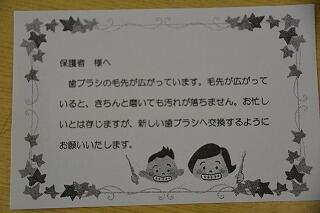 保護者　様へ
　歯ブラシの毛先が広がっています。毛先が広がって
いると、きちんと磨いても汚れが落ちません。お忙し
いとは存じますが、新しい歯ブラシへ交換するように
お願いいたします。